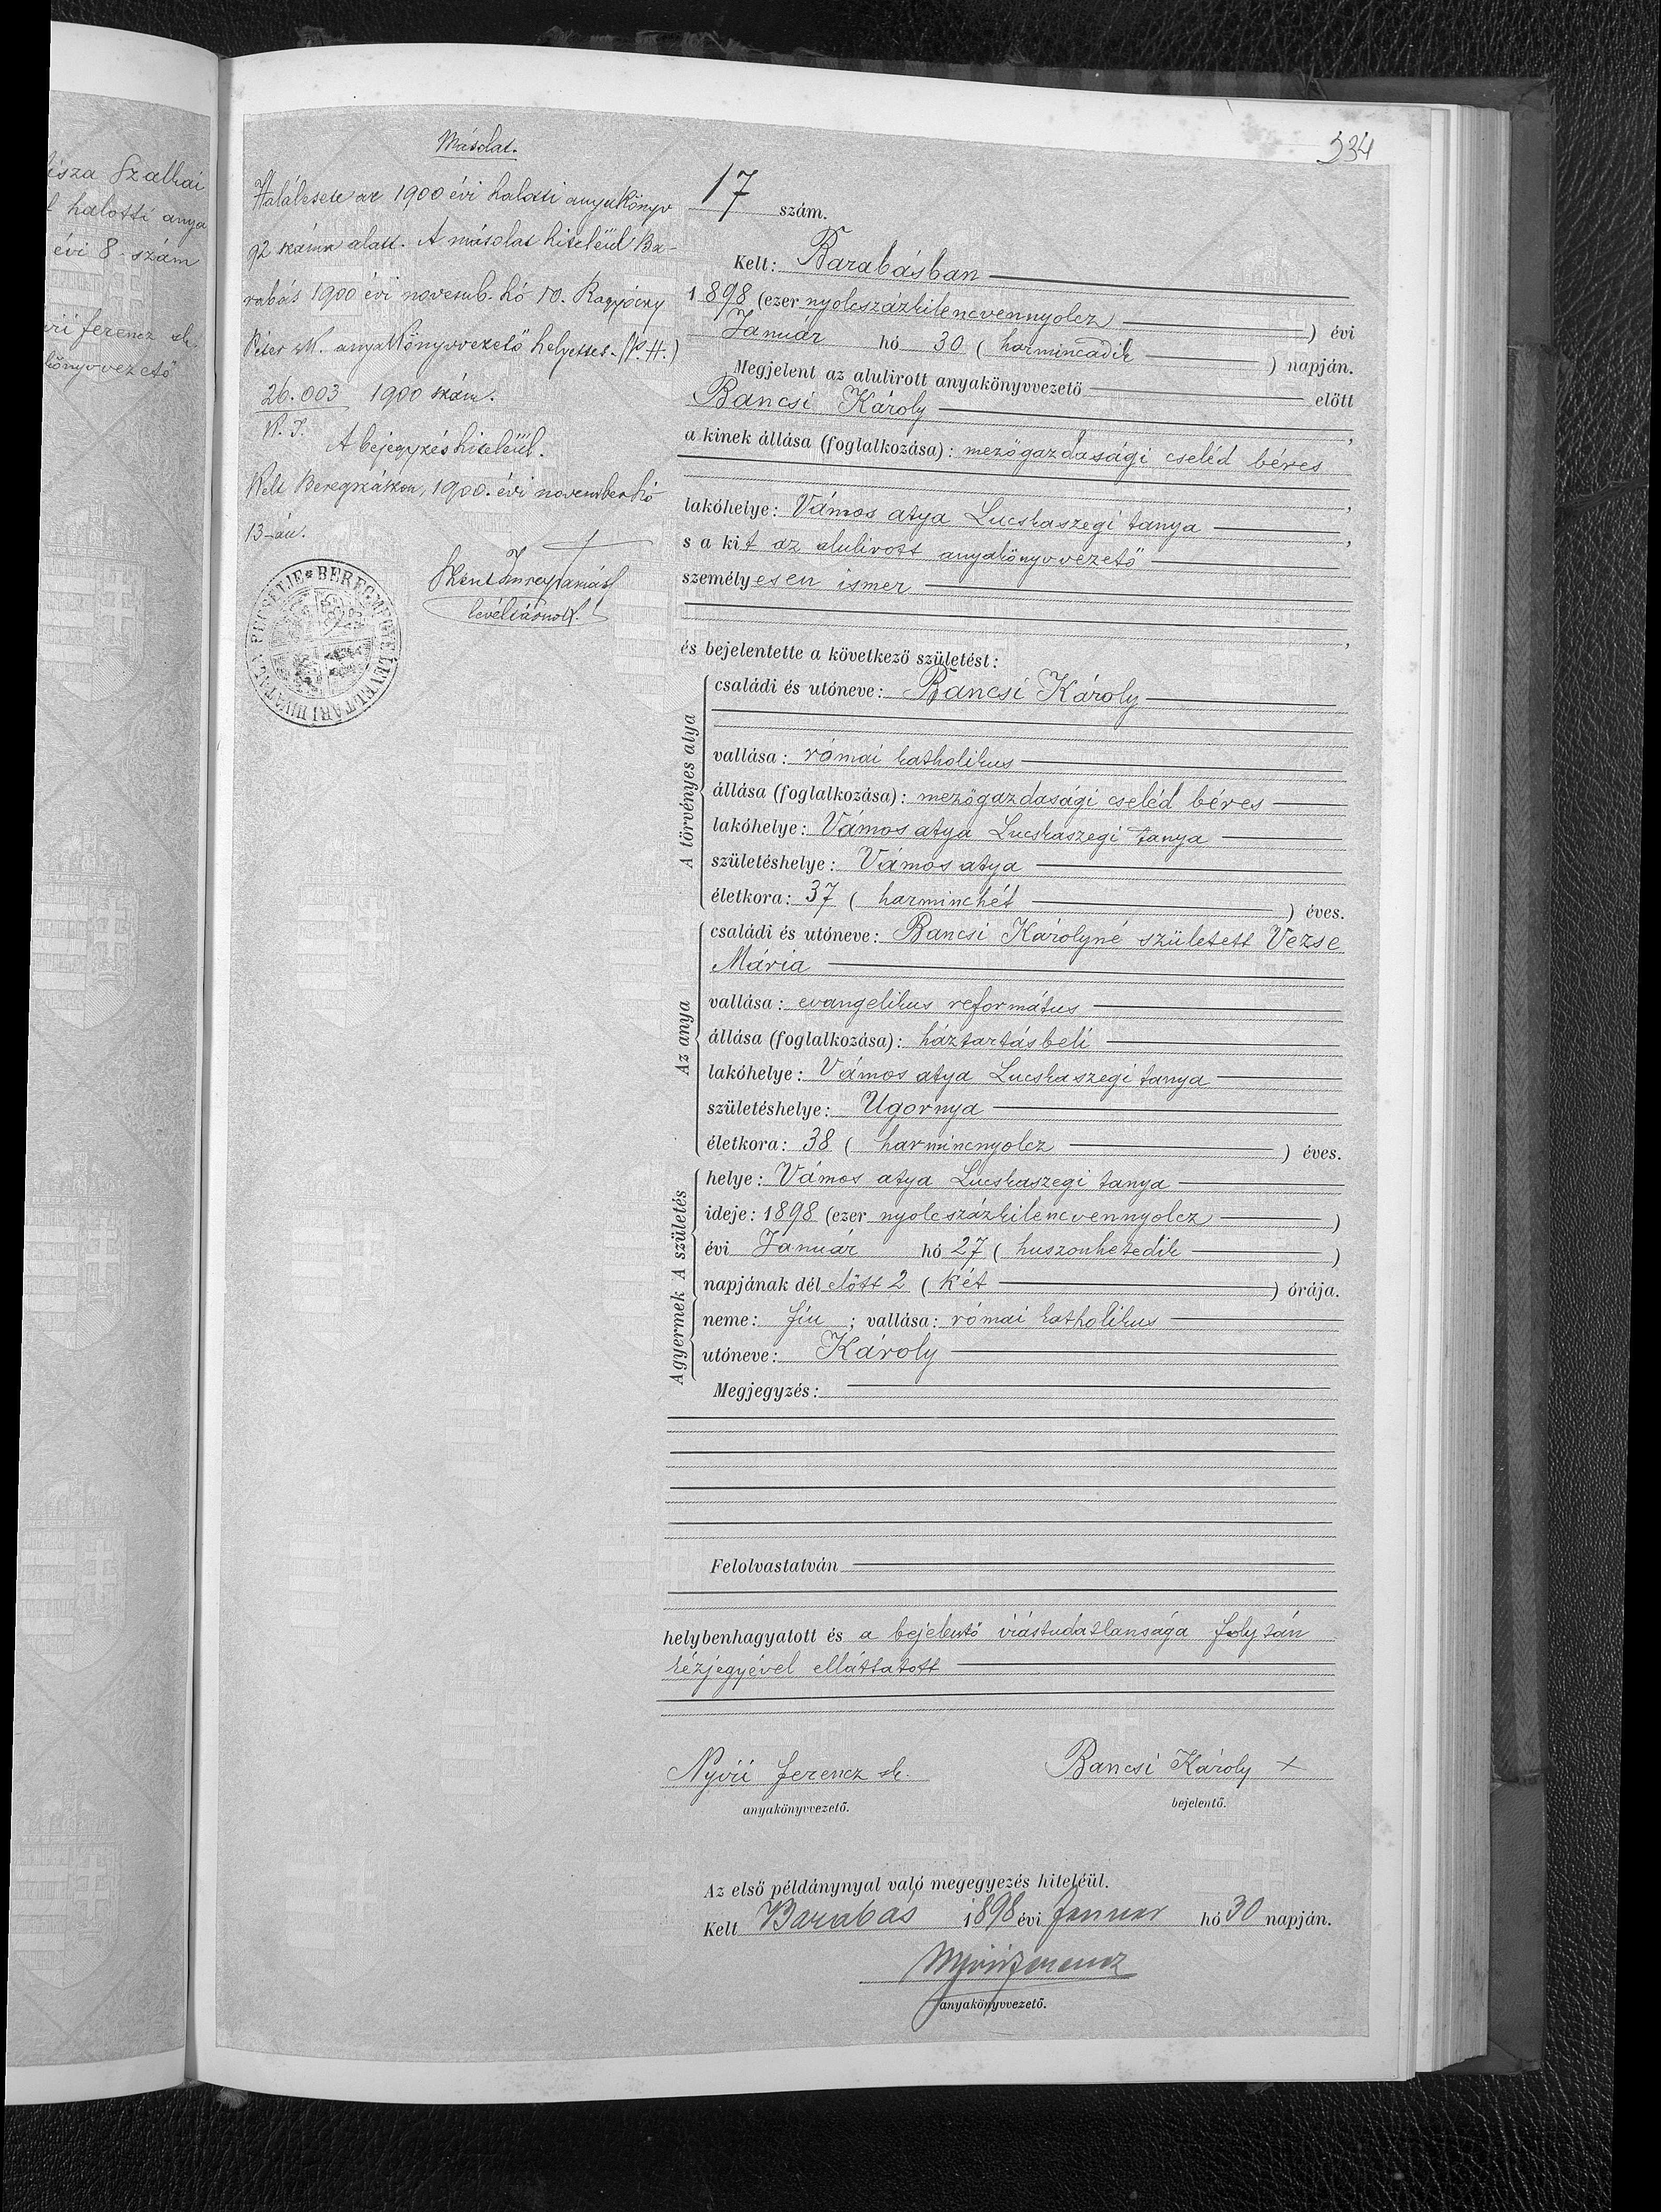 isza Szalkai
halotti anya
évi 8. szám
ferencz sk.
könyvvezető
334
Másolat.
Halálesete az 1900 évi halotti anyakönyv
92 száma alatt. A másolat hiteléül Ba-
rabás 1900 évi novemb. hó 10.
Péter M. anyakönyvvezető helyettes. (P. H.)
26.003 1900 szám.
A bejegyzés hiteléül.
Kelt Beregszászon, 1900. évi november hó
13-án.
levéltárnok
BEREGMEGYE LEVÉLTÁRI HIVATALA
17 szám.
Kelt: Barabásban
1898 (ezer nyolcszázkilencvennyolcz) évi
Január hó 30 (harmincadik) napján.
Megjelent az alulirott anyakönyvvezető előtt
Bancsi Károly,
a kinek állása (foglalkozása): mezőgazdasági cseléd béres
lakóhelye: Vámos atya Lucskaszegi tanya,
s a kit az alulirott anyakönyvvezető
személyesen ismer
és bejelentette a következő születést:
A törvényes atya
családi és utóneve: Bancsi Károly
vallása: római katholikus
állása (foglalkozása): mezőgazdasági cseléd béres
lakóhelye: Vámos atya Lucskaszegi tanya
születéshelye: Vámos atya
életkora: 37 (harminchét) éves.
Az anya
családi és utóneve: Bancsi Károlyné született Vezse
Mária
vallása: evangelikus református
állása (foglalkozása): háztartásbeli
lakóhelye: Vámos atya Lucskaszegi tanya
születéshelye: Ugornya
életkora: 38 (harmincnyolcz) éves.
A gyermek A születés
helye: Vámos atya Lucskaszegi tanya
ideje: 1898 (ezer nyolcszázkilencvennyolcz)
évi Január hó 27 (huszonhetedik)
napjának dél előtt 2 (két) órája.
neme: fiu; vallása: római katholikus
utóneve: Károly
Megjegyzés:
Felolvastatván
helybenhagyatott és a bejelentő irástudatlansága folytán
kézjegyével elláttatott
Nyiri Ferencz sk. Bancsi Károly x
anyakönyvvezető. bejelentő.
Az első példánynyal való megegyezés hiteléül.
Kelt Barabás 1898 évi Januar hó 30 napján.
Nyiri Ferencz
anyakönyvvezető.